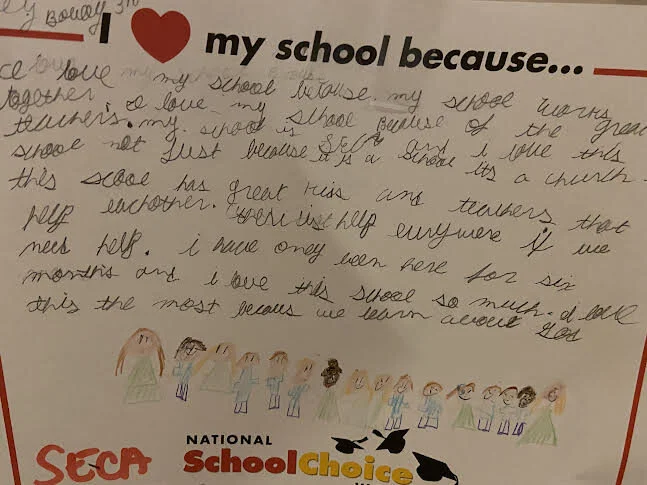 Bowdy 3rd
I my school because...
I love my school because my school works
together. I love my school because of the great
teachers. my school is SECA and i love this
school not Just because it is a school its a church.
this scool has great kiss and teachers that
help eachother. help eurywere if we
need help. i have oney been here for six
months and i love this school so much. I love
this the most becaus we learn about God
SECA
NATIONAL
SchoolChoice